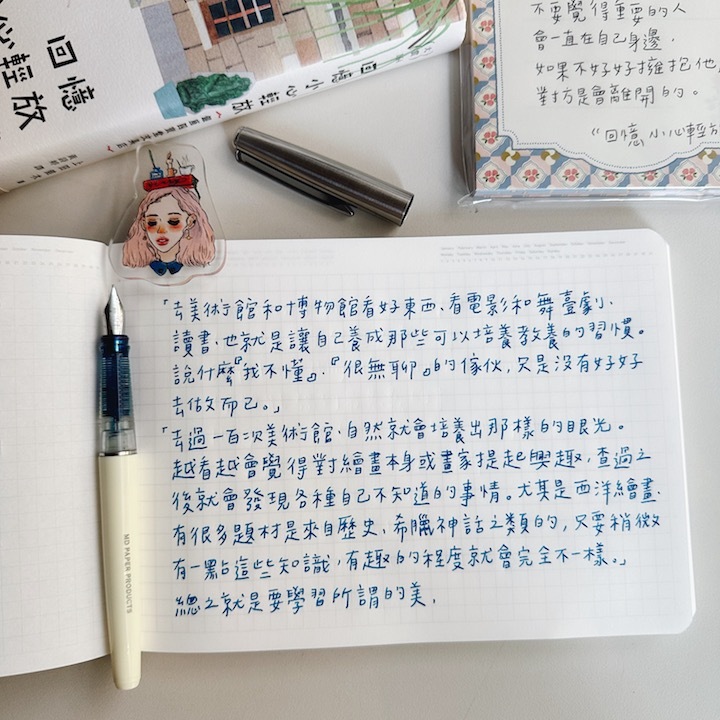 回憶
小心輕放
回憶小心輕放
不要覺得重要的人
會一直在自己身邊,
如果不好好擁抱他,
對方是會離開的。
《回憶 小心輕放
「去美術館和博物館看好東西、看電影和舞臺劇、
讀書、也就是讓自己養成那些可以培養教養的習慣。
說什麼『我不懂』、『很無聊』的傢伙,只是沒有好好
去做而已。」
「去過一百次美術館、自然就會培養出那樣的眼光。
越看越會覺得對繪畫本身或畫家提起興趣,查過之
後就會發現各種自己不知道的事情。尤其是西洋繪畫、
有很多題材是來自歷史、希臘神話之類的,只要稍微
有一點這些知識,有趣的程度就會完全不一樣。」
總之就是要學習所謂的美,
MD PAPER PRODUCTS